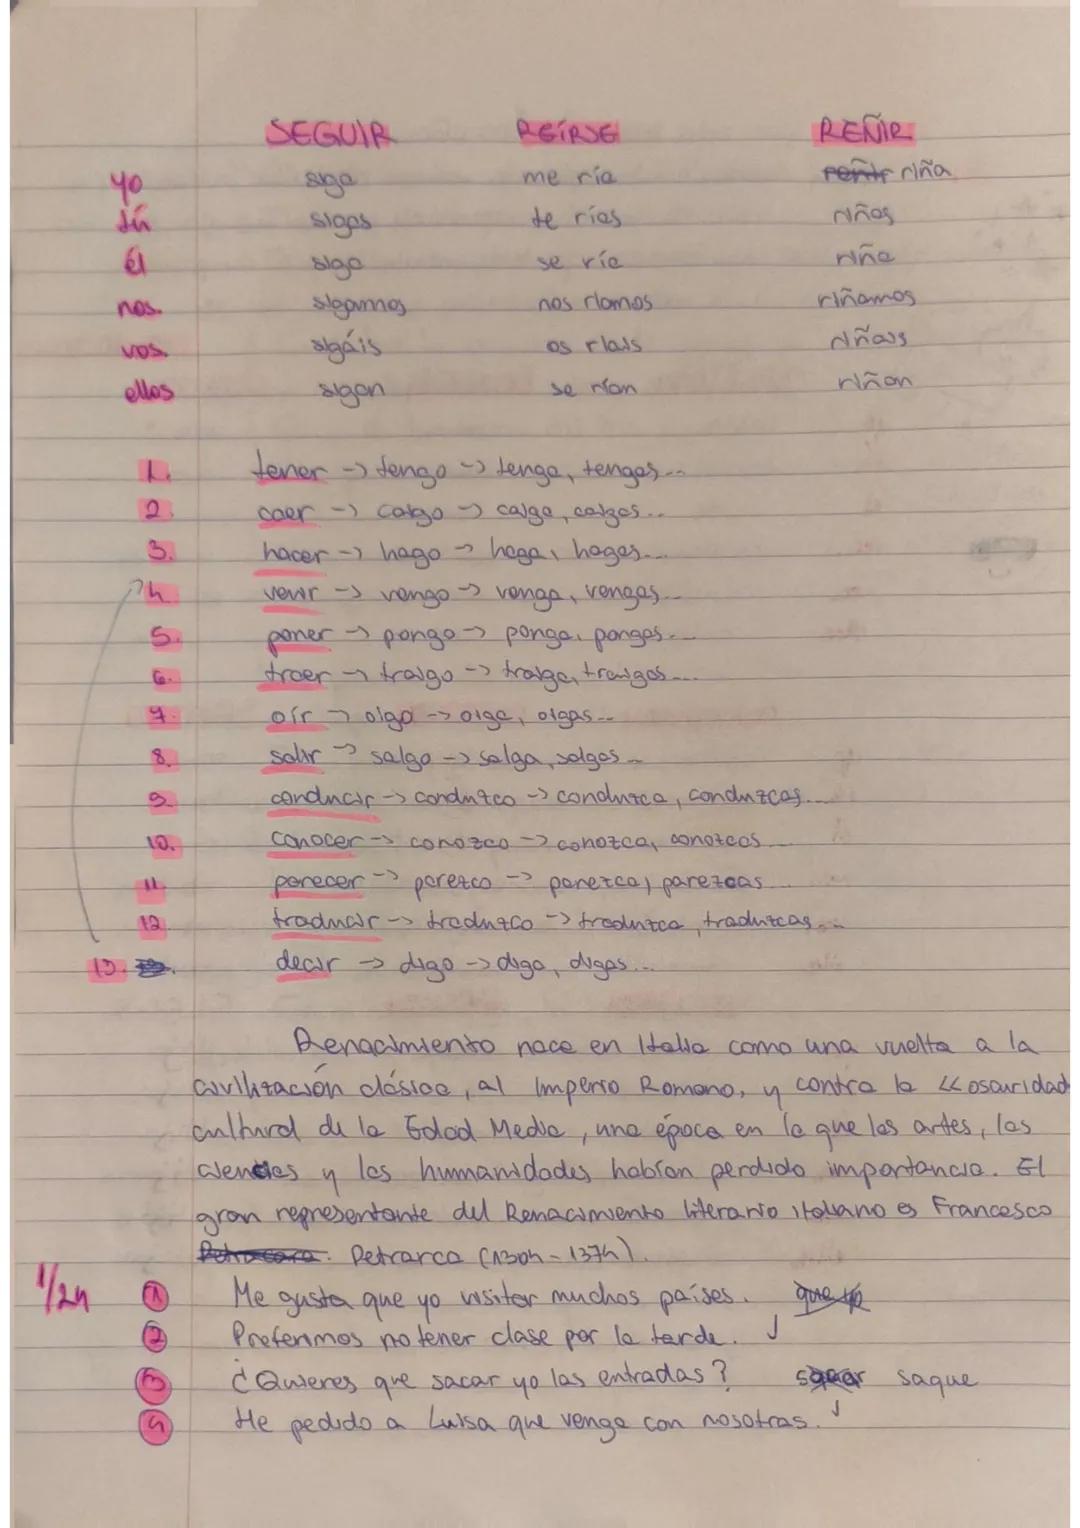 SEGUIR REÍRSE REÑIR
yo siga me ría reñir riña
tú sigas te rías riñas
él siga se ría riña
nos. sigamos nos riamos riñamos
vos. sigáis os riais riñais
ellos sigan se rían riñan
1. tener -> tengo -> tenga, tengas...
2. caer -> caigo -> caiga, caigas...
3. hacer -> hago -> haga, hagas...
4. venir -> vengo -> venga, vengas...
5. poner -> pongo -> ponga, pongas...
6. traer -> traigo -> traiga, traigas...
7. oír -> oigo -> oiga, oigas...
8. salir -> salgo -> salga, salgas...
9. conducir -> conduzco -> conduzca, conduzcas...
10. conocer -> conozco -> conozca, conozcas...
11 parecer -> parezco -> parezca, parezcas...
12. traducir -> traduzco -> traduzca, traduzcas...
13. decir -> digo -> diga, digas...
Renacimiento nace en Italia como una vuelta a la
civilización clásica, al Imperio Romano, y contra la <<oscuridad
cultural de la Edad Media, una época en la que las artes, las
ciencias y las humanidades habían perdido importancia. El
gran representante del Renacimiento literario italiano es Francesco
Petrarca (1304-1374).
1/24 1 Me gusta que yo visitar muchos países. que yo
2 Preferimos no tener clase por la tarde. ✓
3 ¿Quieres que sacar yo las entradas? sacar saque
4 He pedido a Luisa que venga con nosotras. ✓